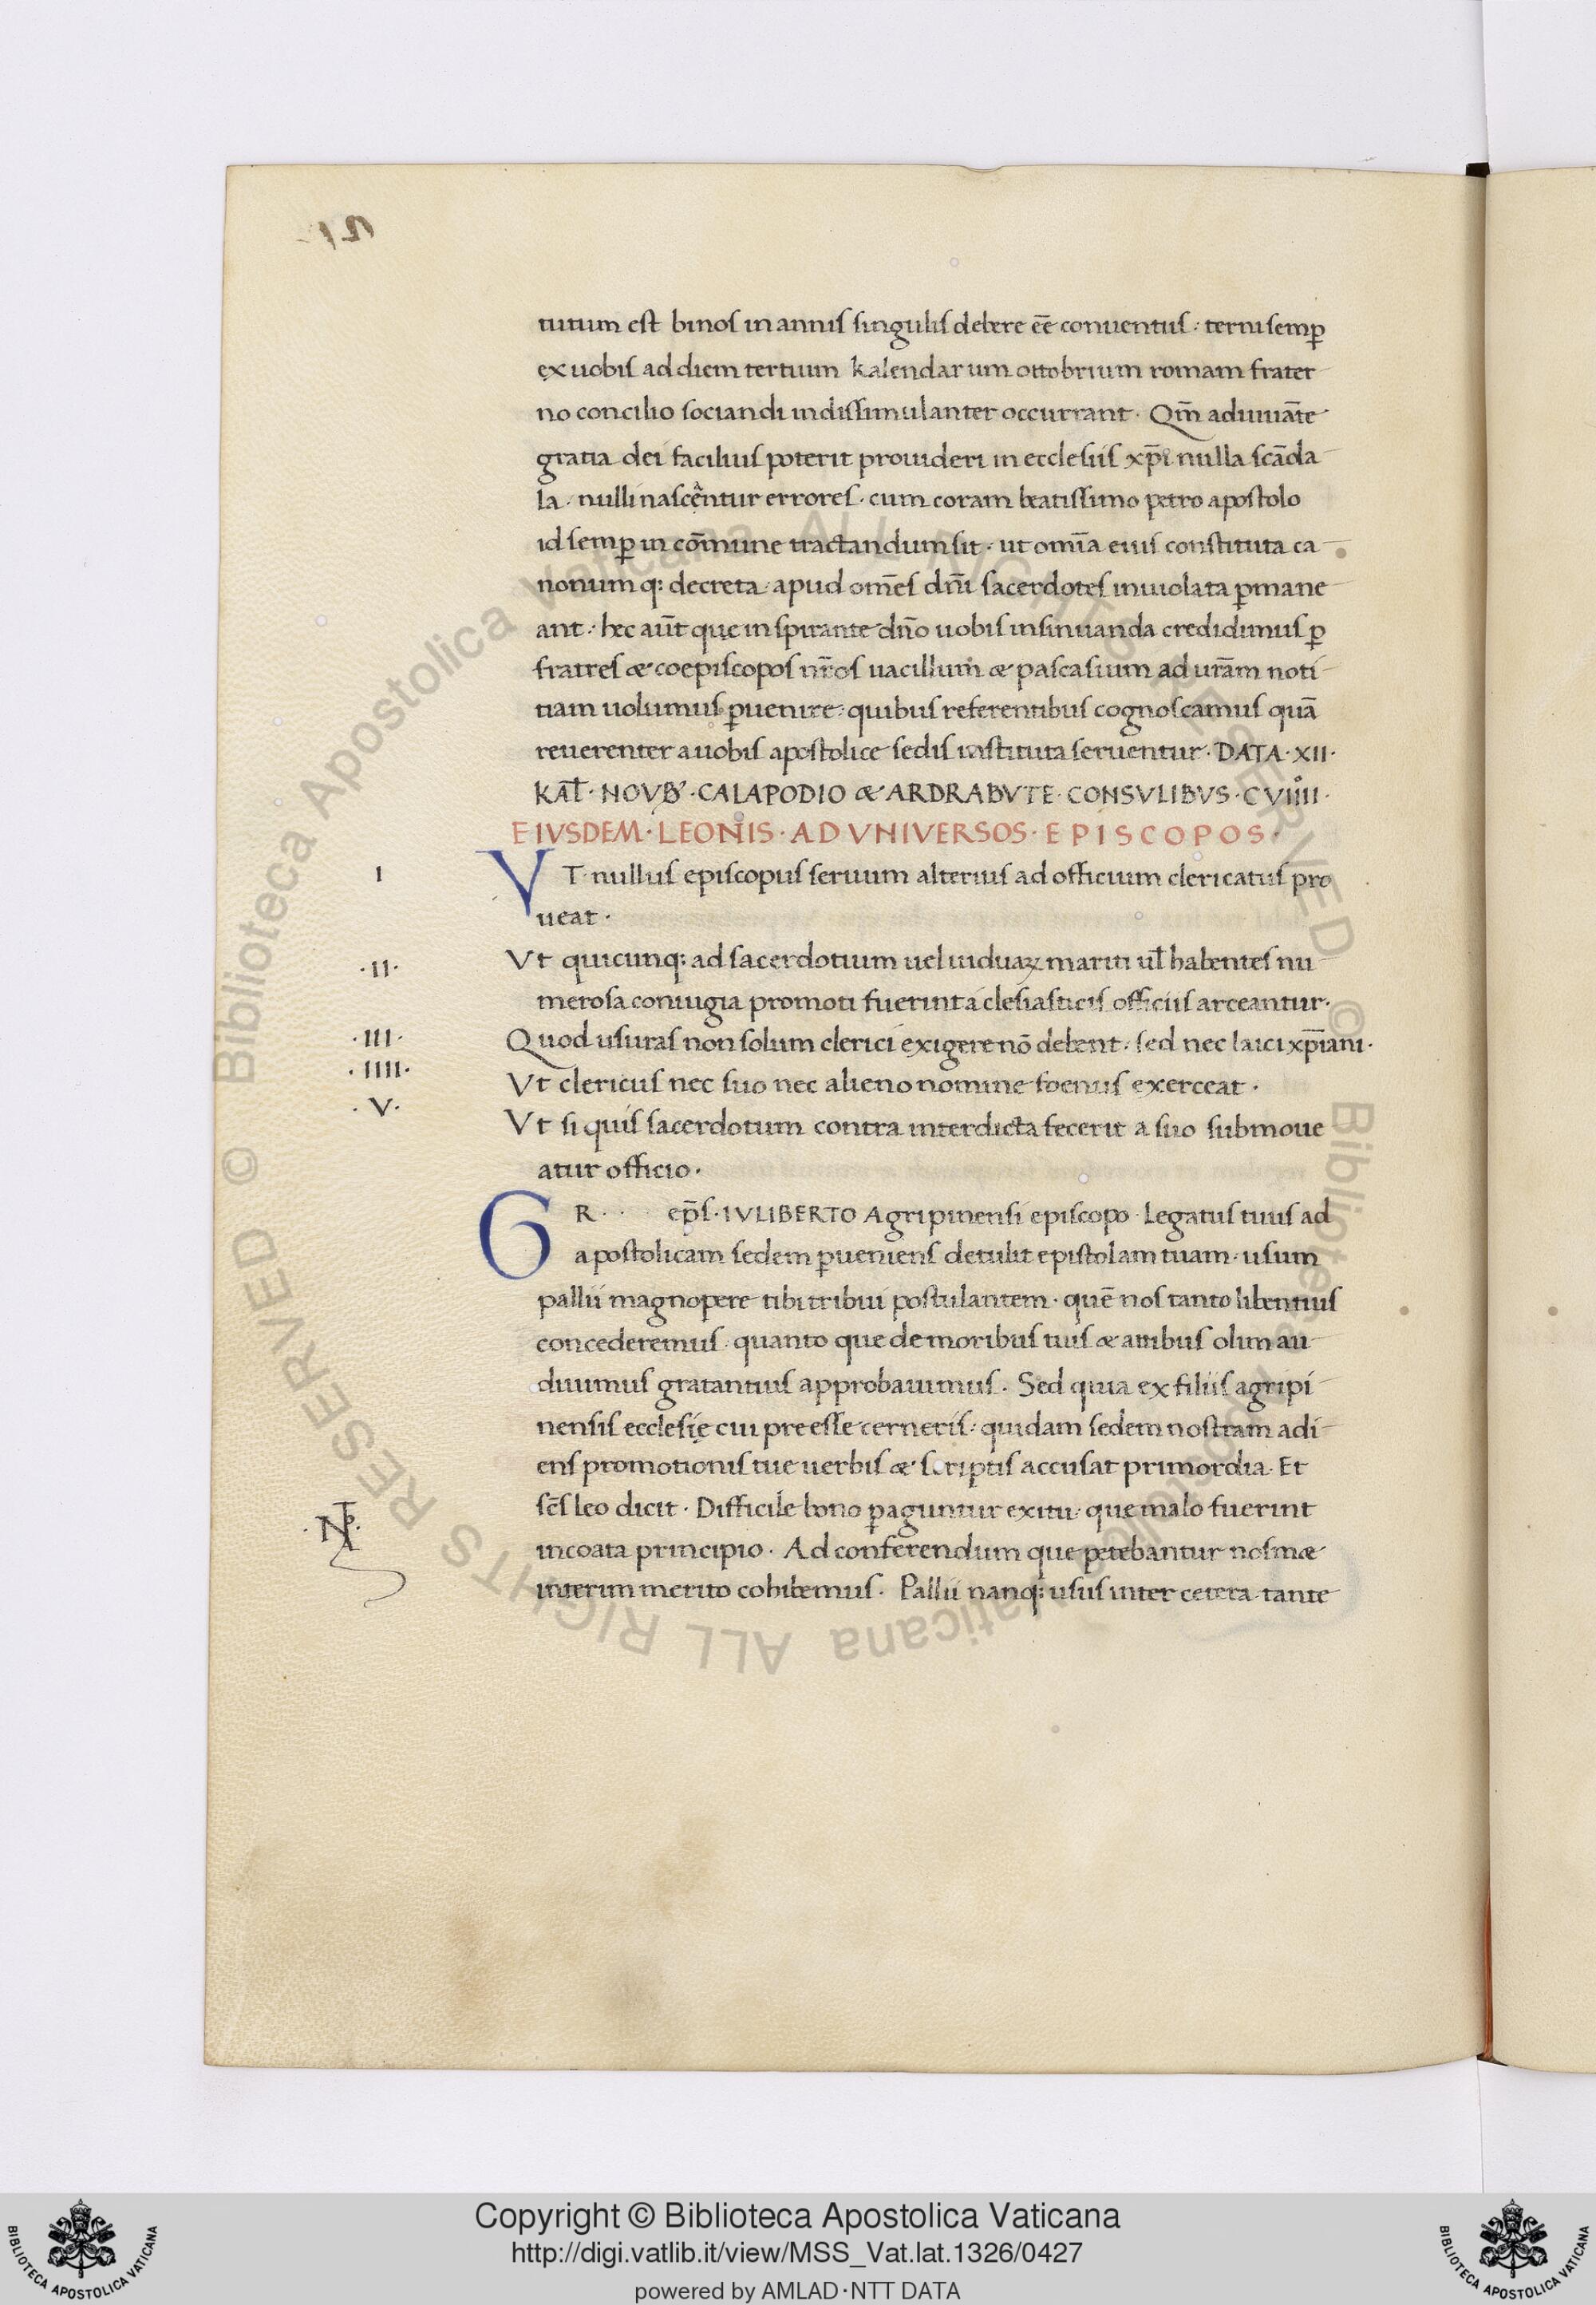 tutum est binos in annis singulis debere eē conuentus : terni semp̄
ex uobis ad diem tertium kalendarum ottobrium romam frater
no concilio sociandi indissimulanter occurrant · Qm̄ adiuuāte
gratia dei facilius poterit prouideri in ecclesiis xp̄i nulla scāda
la · nulli nascentur errores · cum coram beatissimo petro apostolo
id semp̄ in cōmune tractandum sit · ut omīa eius constituta ca
nonumq: decreta · apud om̄es dn̄i sacerdotes inuiolata p̄mane
ant : hec aūt que inspirante dn̄o uobis insinuanda credidimus p̄
fratres & coepiscopos nr̄os uacillum & pascasium ad urām noti
tiam uolumus p̄uenire : quibus referentibus cognoscamus quā
reuerenter a uobis apostolice sedis instituta seruentur · DATA · XII ·
KAL̄ · NOVB̄ · CALAPODIO & ARDRABVTE · CONSVLIBVS · CVIIII ·
EIVSDEM · LEONIS · AD VNIVERSOS · EPISCOPOS ·
I
VT · nullus episcopus seruum alterius ad officium clericatus pro
ueat ·
· II ·
Vt quicunq: ad sacerdotium uel uiduaꝝ mariti ul̄ habentes nu
merosa coniugia promoti fuerint a clesiasticis officiis arceantur ·
· III ·
Quod usuras non solum clerici exigere nō debent · sed nec laici xp̄iani ·
· IIII ·
Vt clericus nec suo nec alieno nomine foenus exerceat ·
· V ·
Vt si quis sacerdotum contra interdicta fecerit a suo submoue
atur officio ·
GR · · ep̄s · IVLIBERTO Agripinensi episcopo · Legatus tuus ad
apostolicam sedem p̄ueniens detulit epistolam tuam · usum
pallii magnopere tibi tribui postulantem · quē nos tanto libentius
concederemus · quanto que de moribus tuis & actibus olim au
diuimus gratantius approbauimus · Sed quia ex filiis agripi
nensis ecclesię cui preesse cerneris : quidam sedem nostram adi
ens promotionis tue uerbis & scriptis accusat primordia · Et
sc̄s leo dicit · Difficile bono p̄aguntur exitu · que malo fuerint
incoata principio · Ad conferendum que petebantur nosm&
interim merito cohibemus · Pallii nanq: usus inter cetera · tante
Copyright © Biblioteca Apostolica Vaticana
http://digi.vatlib.it/view/MSS_Vat.lat.1326/0427
powered by AMLAD·NTT DATA
BIBLIOTECA APOSTOLICA VATICANA
BIBLIOTECA APOSTOLICA VATICANA
© Biblioteca Apostolica Vaticana ALL RIGHTS RESERVED
© Biblioteca Apostolica Vaticana ALL RIGHTS RESERVED